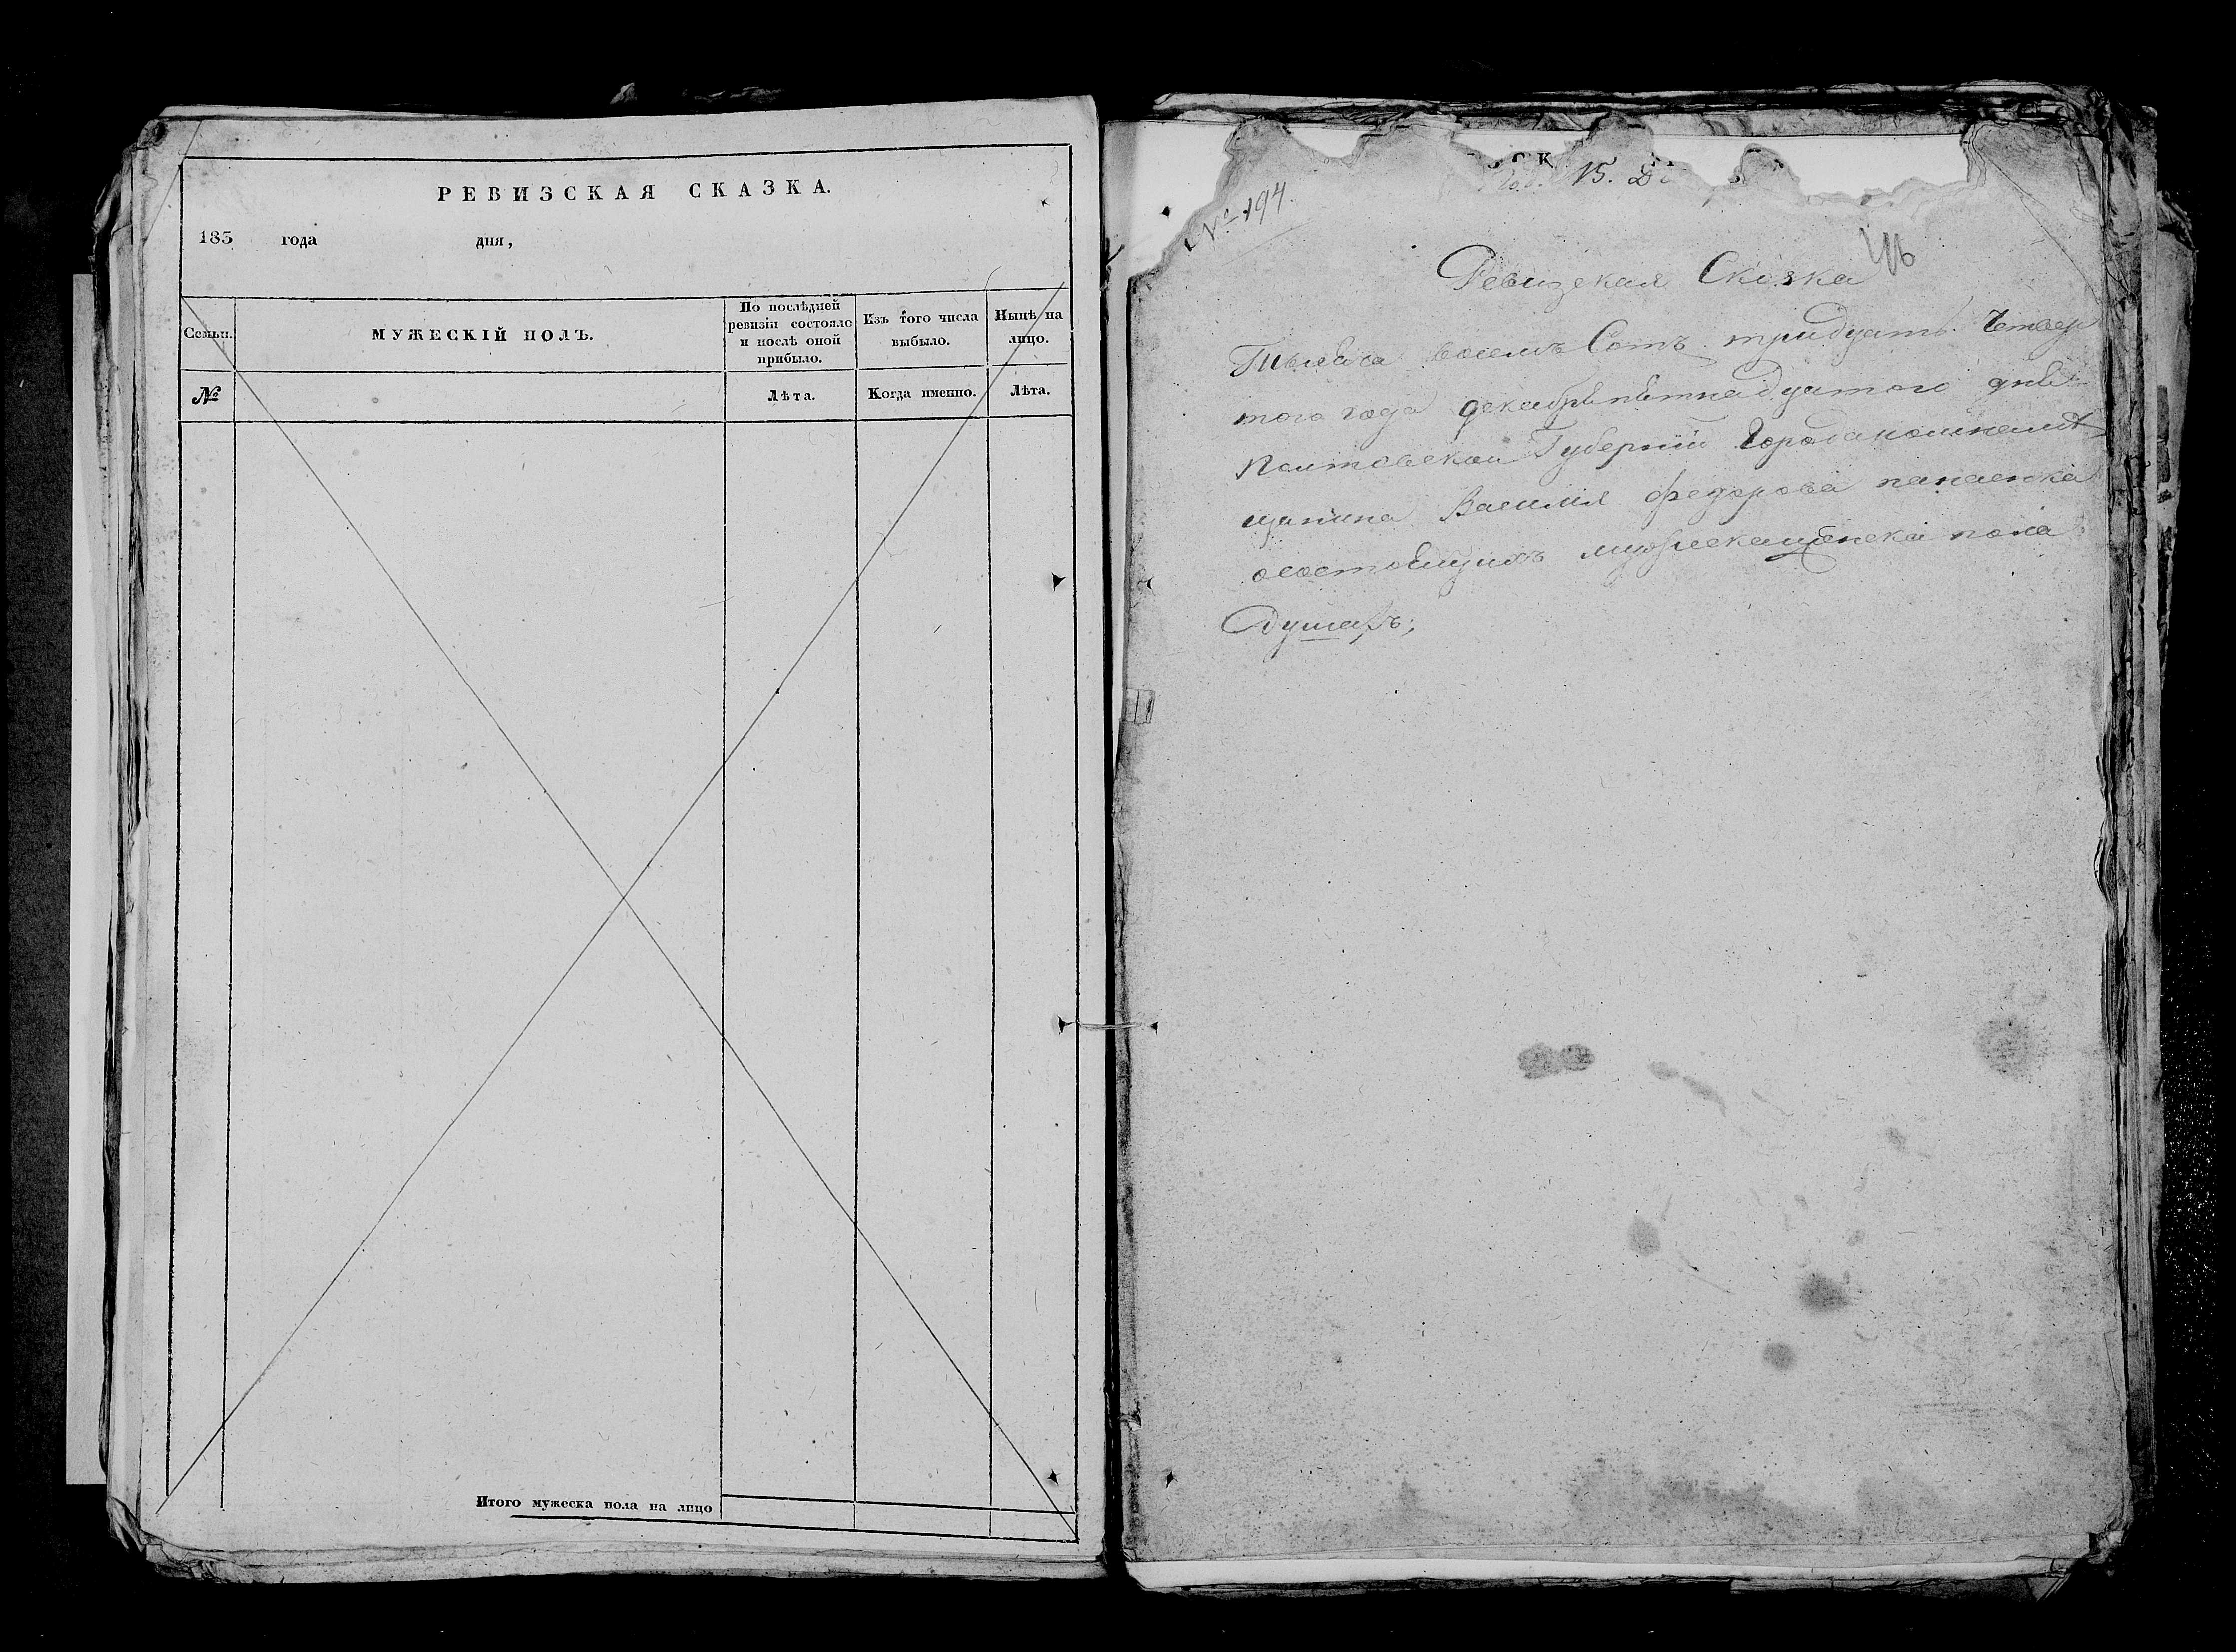 РЕВИЗСКАЯ СКАЗКА.
183 года дня,
Семьи.
МУЖЕСКІЙ ПОЛЪ.
По послѣдней
ревизіи состояло
и послѣ оной
прибыло.
Изъ того числа
выбыло.
Нынѣ на
лицо.
№
Лѣта.
Когда именно.
Лѣта.
Итого мужеска пола на лицо
15.
№ 194.
Ревизская Сказка
Тысяча восемъ Сотъ тридцать Четвер
того года декабря пятнадцатого дня
Полтавской Губерніи Города
щанина Василия Федорова панасенка
осостоящихъ мужеска женска пола
Душахъ;